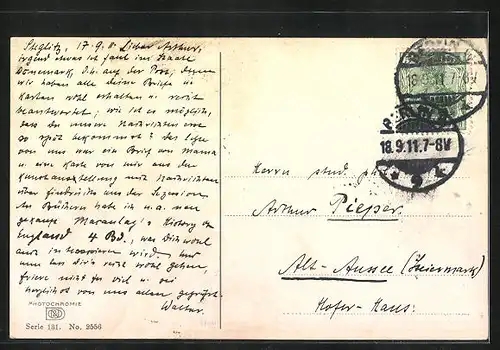 Steglitz, 17.9.11. Lieber Arthur,
irgend etwas ist faul im Staate
Dänemark, d.h. auf der Post, denn
wir haben alle deine Briefe u.
Karten wohl erhalten u. recht
beantwortet; wie ist es möglich,
dass du unsere Nachrichten erst
so spät bekommst? Das letzte
von uns war ein Brief von Mama
u. eine Karte von mir aus der
Kunstausstellung mit Nachrichten
über Eindrücke aus der Sezession.
An Büchern habe ich u.a. neu
gekauft Macaulay's History of
England 4 Bd., was Dich wohl
auch interessieren wird. Nun
lass dir's recht wohl gehen,
friere nicht zu viel u. sei
herzlich von uns allen gegrüßt.
Walter.
PHOTOCHROMIE
Serie 131. No. 2556
BERLIN
18.9.11.7-8V
BERLIN
18.9.11.7-8V
* 9
Herrn stud. 
Arthur Pieper
Alt-Aussee (Steiermark)
Hofer-Haus.